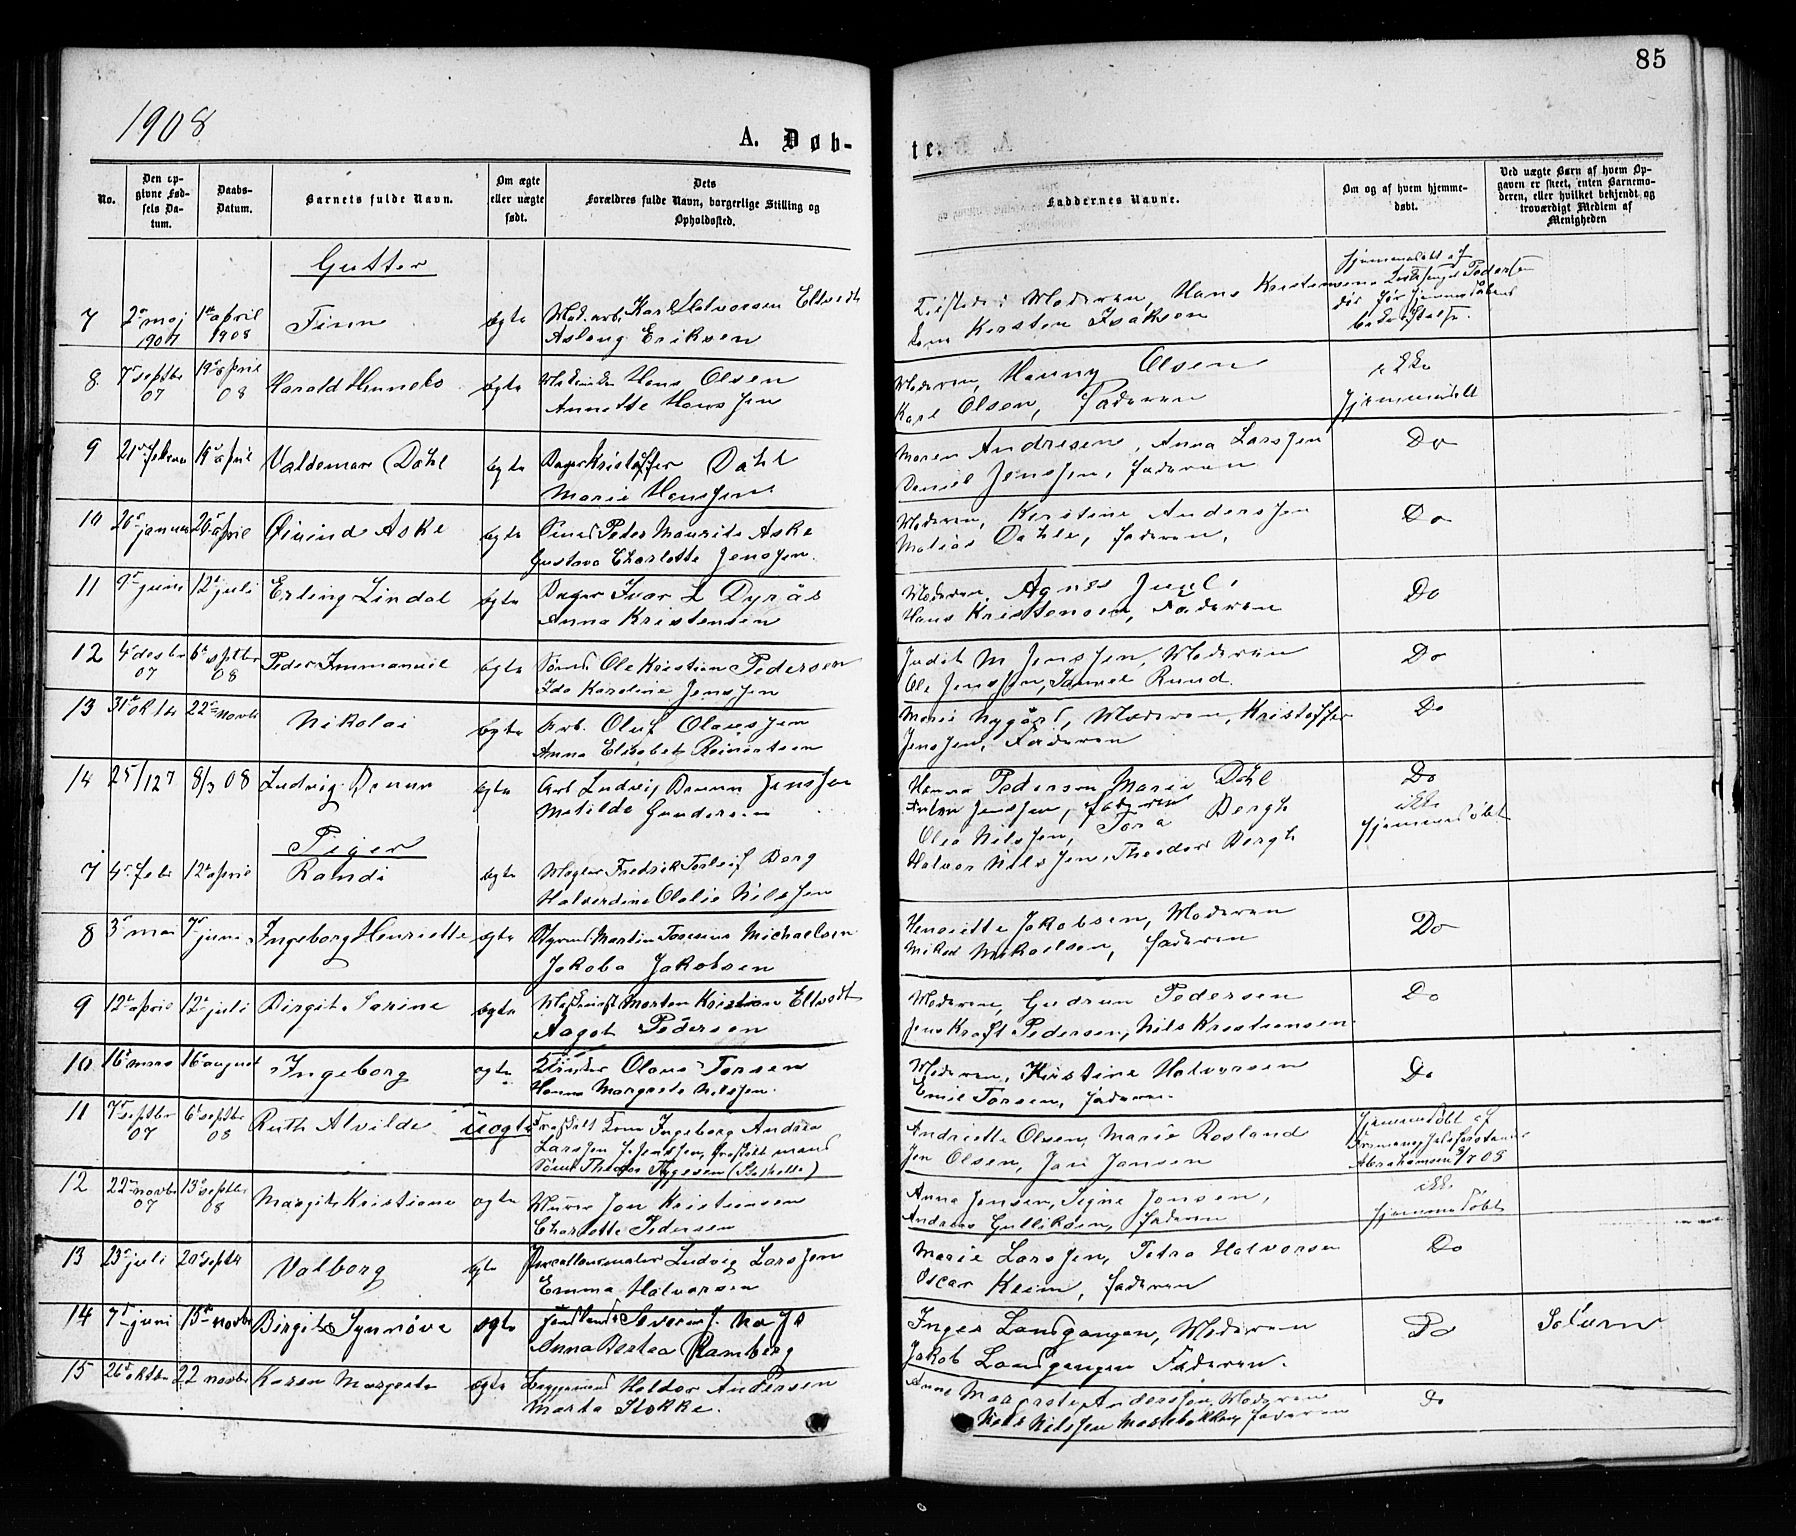 85
1908
A. Døb-
te.
No.
Den op-
givne Fød-
sels Da-
tum.
Daabs-
Datum.
Barnets fulde Navn.
Om ægte
eller uægte
født.
Dets
Forældres fulde Navn, borgerlige Stilling og
Opholdssted.
Faddernes Navne.
Om og af hvem hjemme-
døbt.
Ved uægte Børn af hvem Op-
gaven er skeet, enten Barnemo-
deren, eller hvilket bekjendt og
troværdigt Medlem af
Menigheden
Gutter
7 2 maj 1907 1 april 1908 Finn ægte Karl Halvorsen Eltvedt
Aslaug Eriksen
Moderen, Hans Kristensen
Kersten Isaksen
Pedersen
8 7 septbr 07 19 april 08 Harald ægte Hans Olsen
Annette Hanssen
Moderen, Hanny Olsen
Karl Olsen, Faderen
ikke
hjemmedøbt
9 21 februar 19 april Valdemar Dahl ægte Bager Kristoffer Dahl
Marie Hanssen
Maren Andresen, Anna Larssen
Daniel Jenssen, faderen
Do
10 26 januar 26 april Øivind Aske ægte Peder Mauritz Aske
Gustava Charlotte Jenssen.
Moderen, Kirstine Anderssen
Matias Dahle, faderen,
Do
11 9 juni 12 juli Erling Lindal ægte Bager Ivar L Dyrås
Anna Kristensen
Moderen, Agnes Juul,
Hans Kristensen, Faderen
Do
12 4 desbr 07 6 septbr 08 Peder Immanuel ægte Ole Kristian Pedersen
Ida Karoline Jenssen
Judit M Jenssen, Moderen
Ole Jenssen, Samuel Rund
Do
13 31 oktbr 22 novbr Nikolai ægte Arb. Oluf Olaussen
Anna Elisabet Reinertsen
Marie Nygård, Moderen, Kristoffer
Jenssen, Faderen
Do
14 25/12 7 8/3 08 Ludvig ægte Arb Ludvig Jenssen
Matilde Gundersen
Hanna Pedersen Marie Dahl
Anton Jenssen, faderen
Do
Piger
7 4 febr 12 april Randi ægte Mægler Fredrik Torleif Berg
Halverdine Olalie Nilssen
Olea Nilssen, Tora Bergh
Halvor Nilssen, Theodor Bergh
ikke
hjemmedøbt
8 3 mai 7 juni Ingeborg Henriette ægte Styrmd Martin Michaelsen
Jakoba Jakobsen
Henriette Jakobsen, Moderen
Mikael Mikaelsen, faderen
Do
9 12 april 12 juli Birgit Sarine ægte Morten Kristian Eltvedt
Aagot Pedersen
Moderen, Gudrun Pedersen
Jens Kraft Pedersen, Nils Kristiansen
Do
10 16 mars 16 august Ingeborg ægte Olaus Torsen
Hanna Margrete Nilssen.
Moderen, Kirstine Halvorsen
Emil Torsen, faderen.
Do
11 7 septbr 07 6 septbr 08 Ruth Alvilde uægte Fraskilt Kone Ingeborg Andrea
Larssen f. Jenssen, fraskilt mand
Tygesen
Andriette Olsen, Marie Rosland
Jen Olsen, Jan Jansen
Hjemmedøbt af
Abrahamsen
12 22 novbr 07 13 septbr 08 Margit Kristiane ægte Murer Jon Kristiansen
Charlotte Pedersen
Anna Jensen, Signe Jonsen,
Andreas Gulliksen, faderen
ikke
hjemmedøbt
13 23 juli 20 septbr Valborg ægte Ludvig Larssen
Emma Halvorsen
Marie Larssen, Petra Halvorsen
Oscar Keim, faderen
Do
14 7 juni 15 novbr Birgit Synnøve ægte Severin J.
Anna Bertea Ramberg
Inger Landgangen, Moderen
Jakob Landgangen Faderen.
Do
Solum
15 26 oktbr 22 novbr Karen Margrete ægte Haldor Andersen
Marta Stokke.
Anne Margrete Anderssen, Moderen
Nils Nilssen faderen
Do